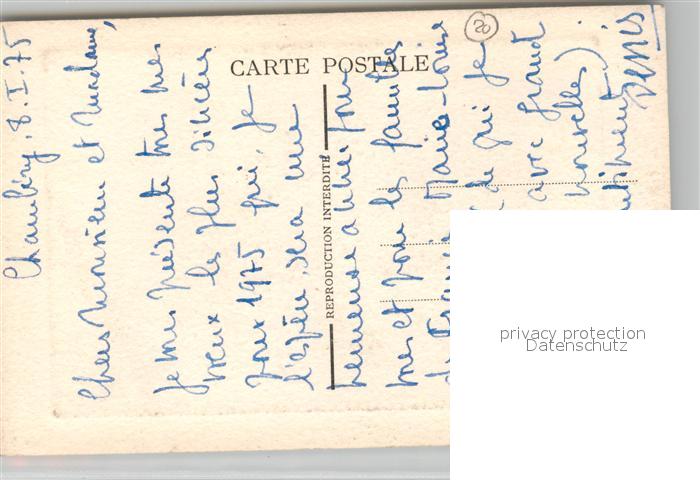 CARTE POSTALE
REPRODUCTION INTERDITE
20
Chambéry, 8.I.75
Chers Monsieur et Madame,
Je vous présente tous mes
vœux les plus sincères
pour 1975 qui, je
l'espère, sera une
heureuse année pour
vous et pour les familles
de Francis, Marie-Louise
de qui je
avec grand
nouvelles).
Denis
privacy protection
Datenschutz